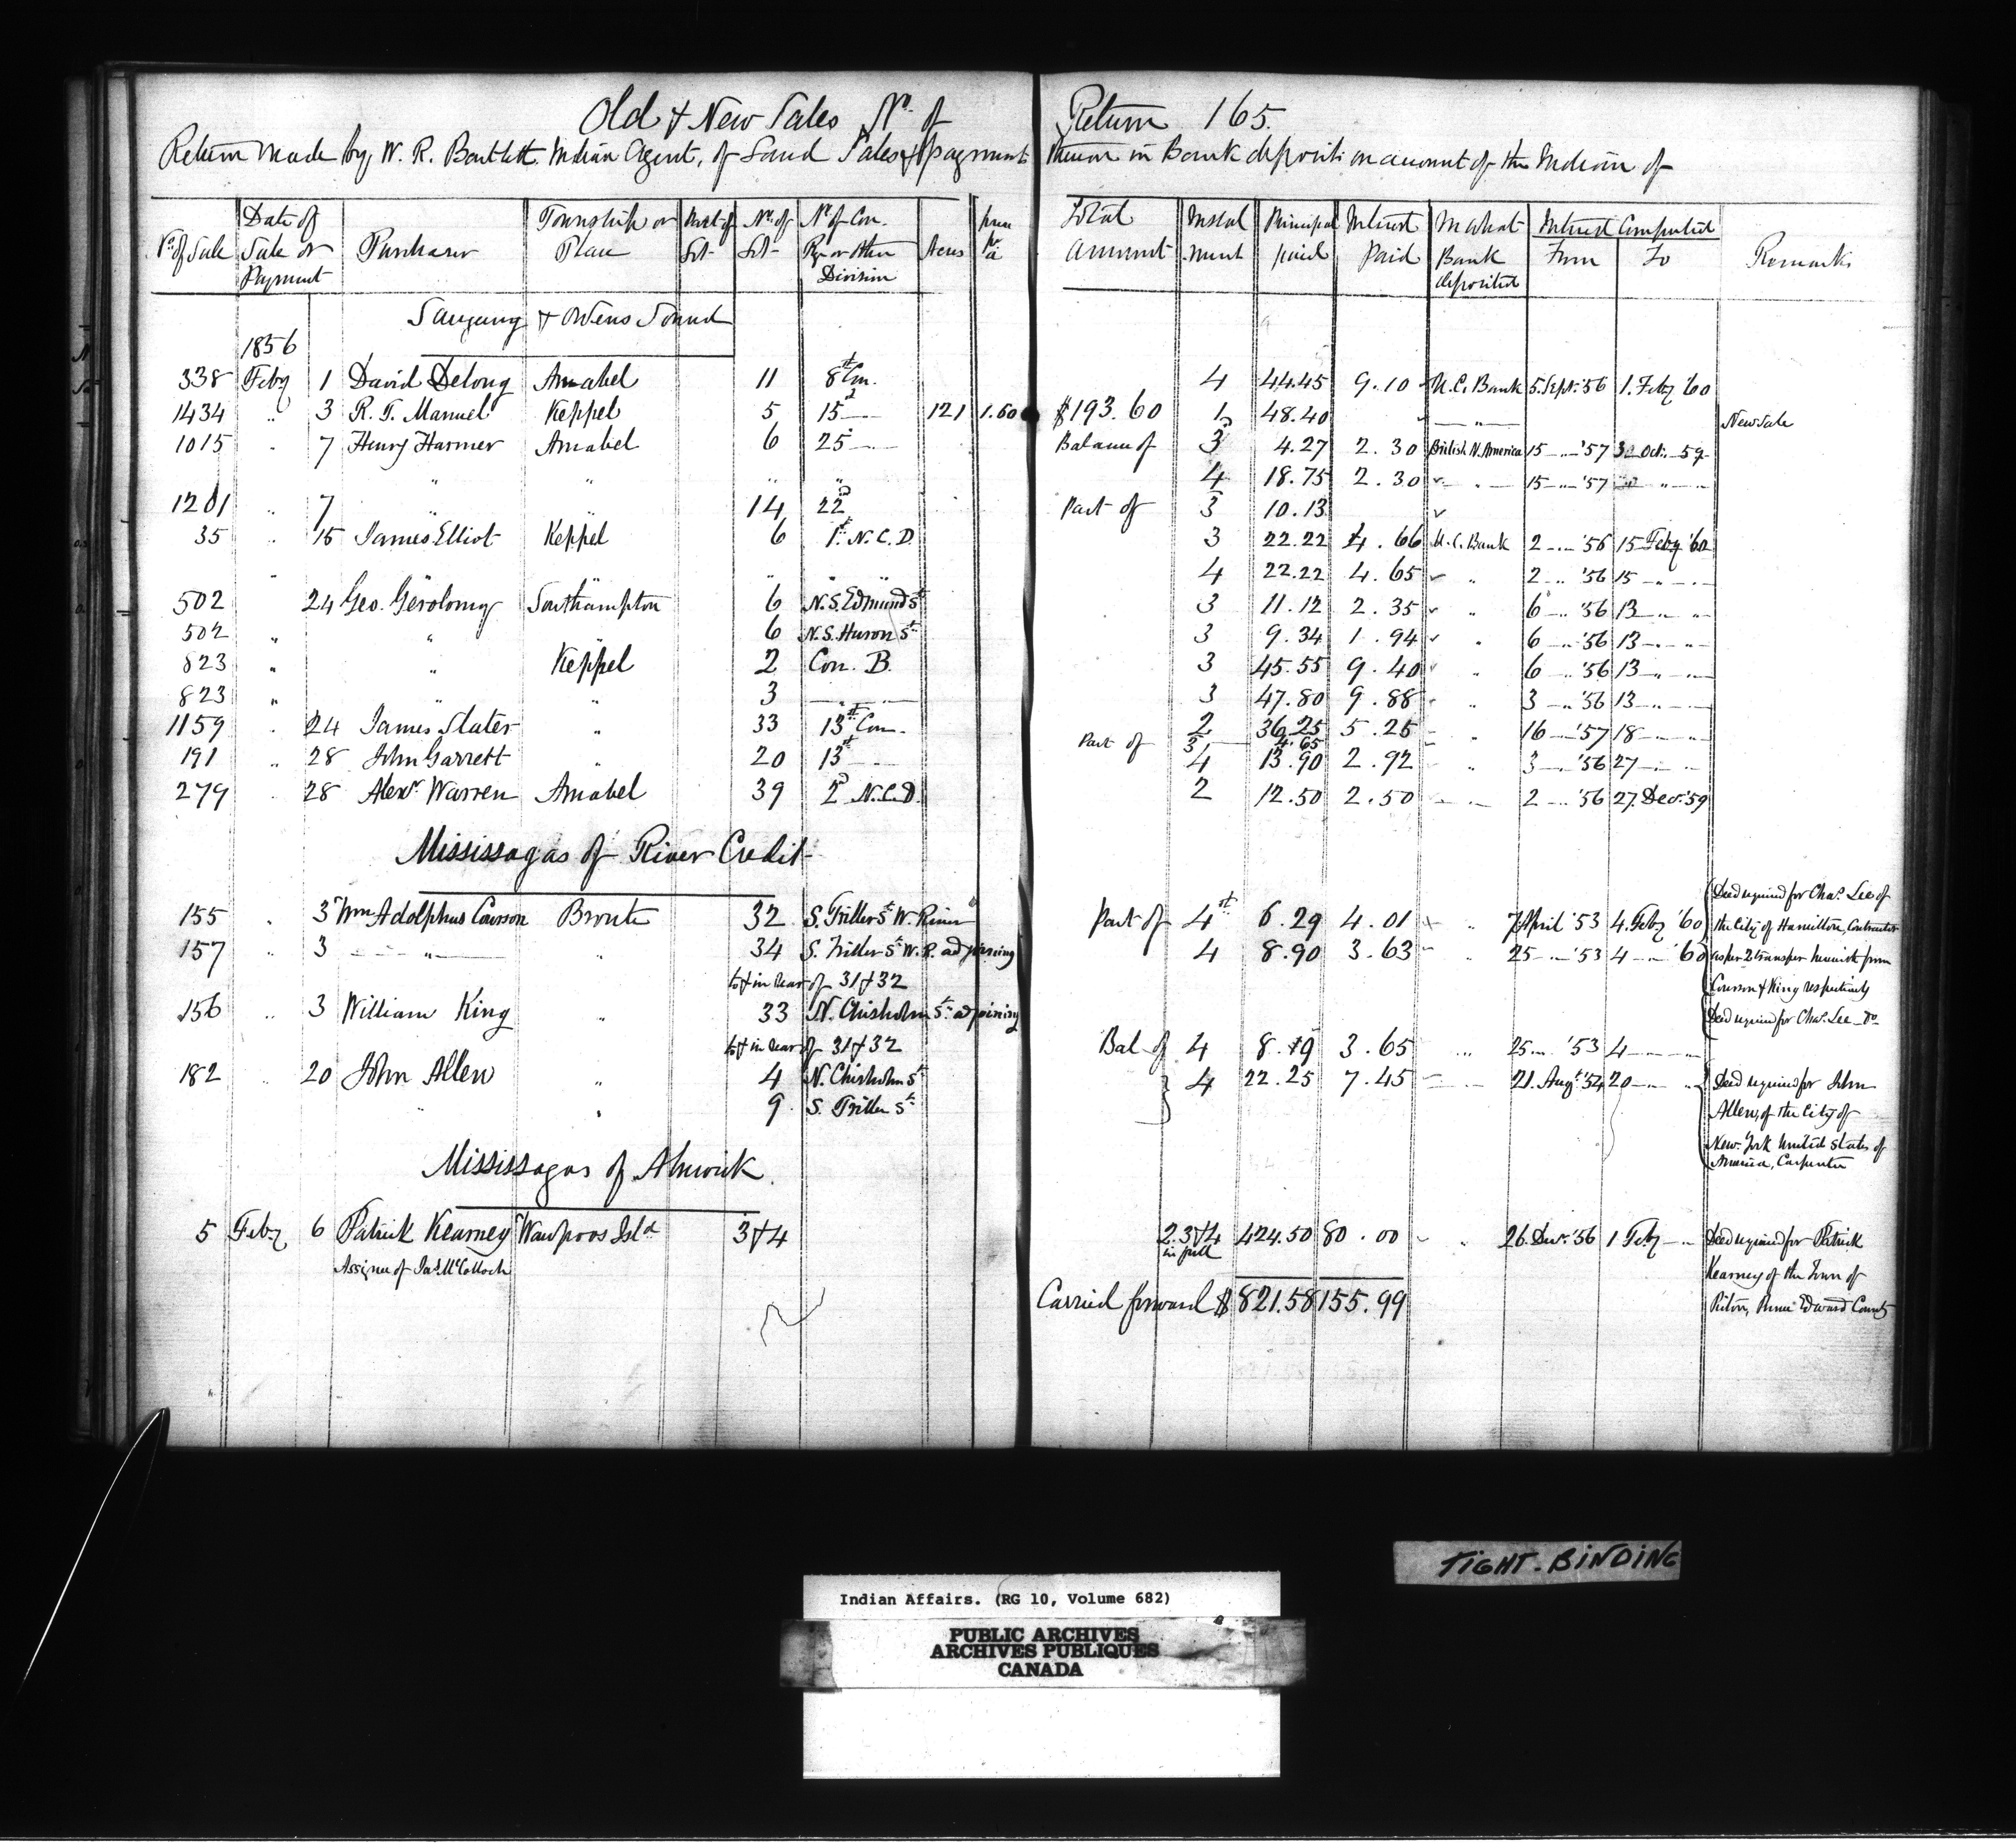 Old & New Sales No. of Return 165.
Return made by, W. R. Bartlett Indian Agent, of Land Sales & payment thereon in Bank deposit on account of the Indian of
No. of Sale | Date of Sale or Payment | Purchaser | Township or Place | Part of Lot | No. of Lot | No. of Con. Rge or other Division | Acres | price pr. a | Total amount | Instalment | Principal paid | Interest Paid | In what Bank deposited | Interest Computed From | To | Remarks
Saugeeng & Owens Sound
1856
338 Feby 1 David Delong Amabel 11 8th Con. 4 44.45 9.10 U.C. Bank 5 Sept. '56 1. Feby '60
1434 " 3 R. T. Manuel Keppel 5 15 " 121 1.60 $193.60 1 48.40 " New Sale
1015 " 7 Henry Harmer Amabel 6 25 " Balance of 3 4.27 2.30 British N. America 15 " '57 3 Octr. 59
" " " " 4 18.75 2.30 " " 15 " '57 " "
1201 " 7 " 14 22d Part of 3 10.13
35 " 15 James Elliot Keppel 6 1st N.C.D. 3 22.22 4.66 U.C. Bank 2 " '56 15 Feby '60
" " " " " " 4 22.22 4.65 " 2 " '56 15 " "
502 24 Geo. Gerolomy Southampton 6 N.S. Edmund St 3 11.12 2.35 " 6 " '56 13 " "
502 " " 6 N.S. Huron St 3 9.34 1.94 " 6 " '56 13 " "
823 " " Keppel 2 Con. B. 3 45.55 9.40 " 6 " '56 13 " "
823 " 3 " 3 47.80 9.88 " 3 " '56 13 " "
1159 " 24 James Slater " 33 13th Con. 2 36.25 5.25 " 16 " '57 18 " "
Part of 3 4.65
191 " 28 John Garrett " 20 13th " 4 13.90 2.92 " 3 " '56 27 " "
279 " 28 Alexr. Warren Amabel 39 2d N.C.D. 2 12.50 2.50 " 2 " '56 27 Decr. '59
Mississagas of River Credit
155 " 3 Wm Adolphus Courson Bronte 32 S. Triller St W. River Part of 4th 6.29 4.01 " 7 April '53 4. Feby '60 Deed required for Chas. Lee of
the City of Hamilton, Contractor
157 " 3 " " 34 S. Triller St W.R. adjoining 4 8.90 3.63 " 25 " '53 4 " '60 as per 2 transfers herewith from
lot in rear of 31 & 32 Courson & King respectively
156 " 3 William King " 33 N. Chisholm St. adjoining Deed required for Chas. Lee Do
lot in rear of 31 & 32 Bal of 4 8.19 3.65 " 25 " '53 4 " "
182 " 20 John Allen " 4 N. Chisholm St 4 22.25 7.45 " 21. Augt '54 20 " " Deed required for John
" " 9. S. Triller St Allen, of the City of
New York United States of
America, Carpenter
Mississagas of Alnwick.
5 Feby 6 Patrick Kearney Waupoos Isld 3 & 4 2. 3 & 4 in full 424.50 80.00 " " 26. Decr. '56 1 Feby " Deed required for Patrick
Assignee of Jas. McColloch Kearney of the Town of
Picton, Prince Edward County
Carried forward $ 821.58 155.99
TIGHT-BINDING
Indian Affairs. (RG 10, Volume 682)
PUBLIC ARCHIVES
ARCHIVES PUBLIQUES
CANADA